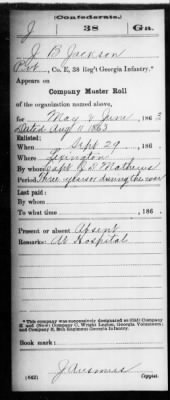 (Confederate.)
J 38 Ga.
J B Jackson
Pvt, Co. E, 38 Reg't Georgia Infantry.*
Appears on
Company Muster Roll
of the organization named above,
for May & June, 1863
Dated Aug 11 1863
Enlisted:
When Sept 29, 186 .
Where Lexington
By whom Capt Mathews
Period Three years or during the war
Last paid:
By whom
To what time , 186 .
Present or absent Absent
Remarks: At Hospital
*This company was successively designated as (Old) Company
H and (New) Company C, Wright Legion, Georgia Volunteers;
and Company E, 38th Regiment Georgia Infantry.
Book mark:
(642) Copyist.